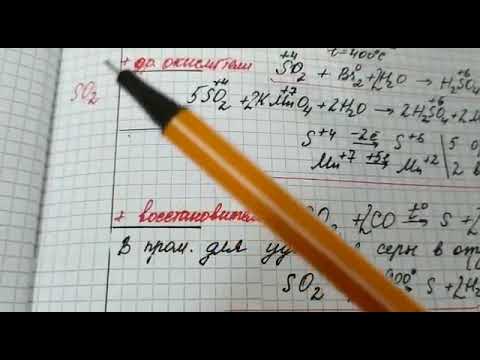 t=400°C
+ да окислители
SO₂
⁺⁴SO₂ + Br₂⁰ + 2H₂O → H₂⁺⁶SO₄
5⁺⁴SO₂ + 2K⁺⁷MnO₄ + 2H₂O → 2H₂⁺⁶SO₄ + 2M
S⁺⁴ —⁻²ᵉ→ S⁺⁶ | 5 о
Mn⁺⁷ —⁺⁵ᵉ→ Mn⁺² | 2 в
+ восстановители O₂ + 2CO —t°→ S +
В пром. для уд серы в от
SO₂ 00° S + 2H₂